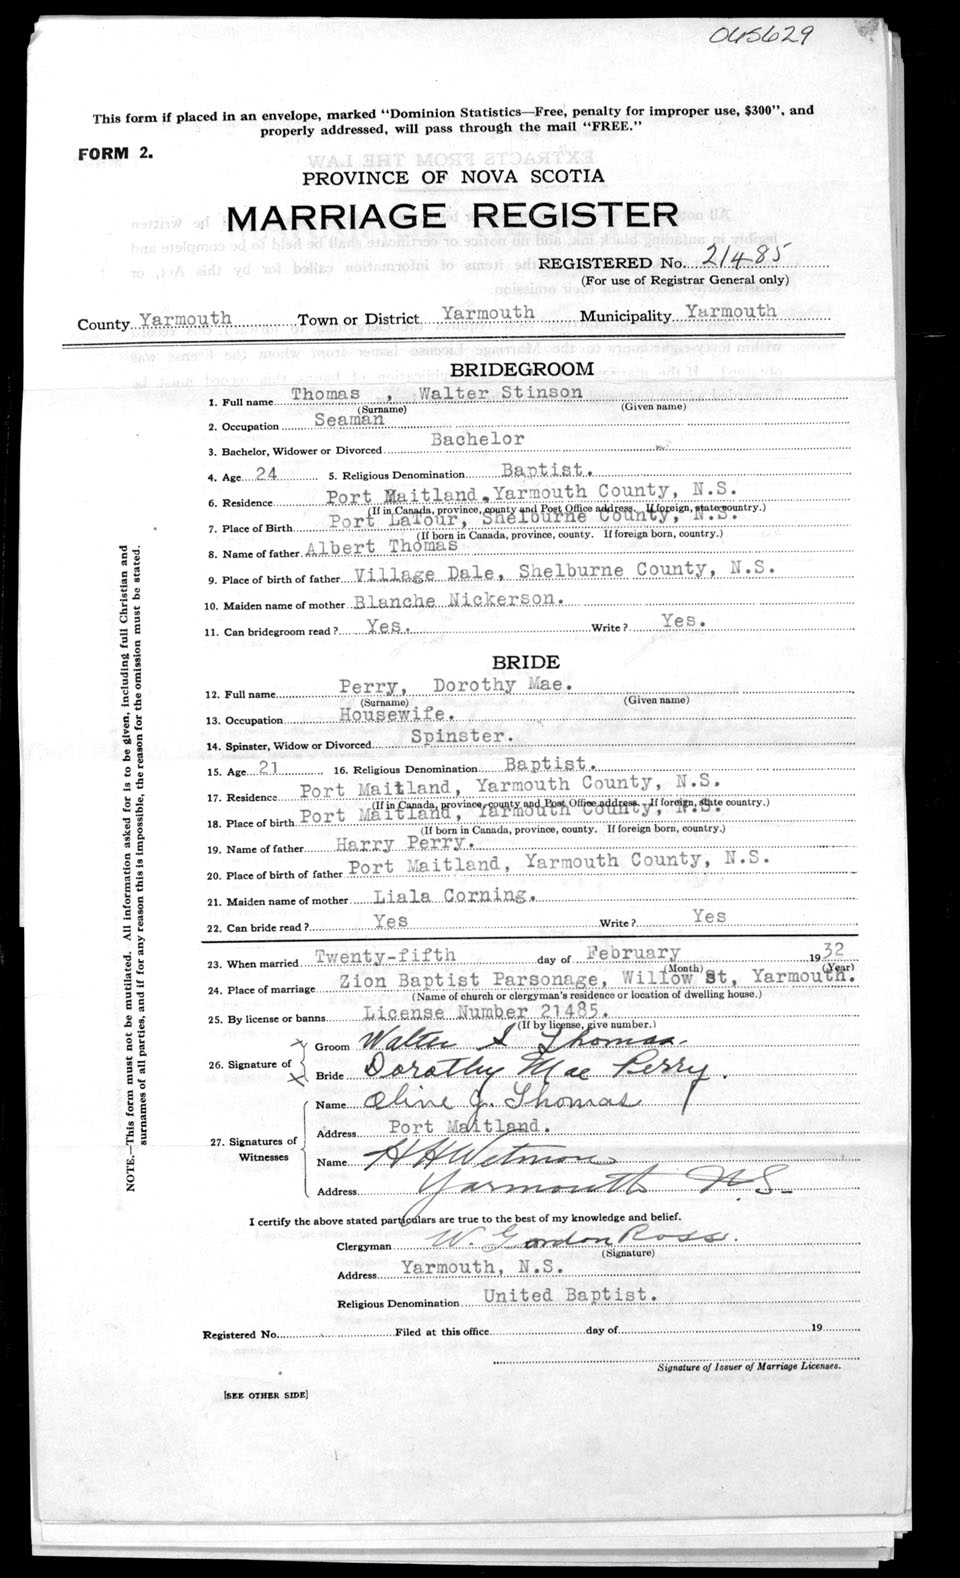 045629
This form if placed in an envelope, marked "Dominion Statistics—Free, penalty for improper use, $300", and
properly addressed, will pass through the mail "FREE."
FORM 2.
PROVINCE OF NOVA SCOTIA
MARRIAGE REGISTER
REGISTERED No. 21485
(For use of Registrar General only)
County Yarmouth Town or District Yarmouth Municipality Yarmouth
BRIDEGROOM
1. Full name Thomas , Walter Stinson
(Surname) (Given name)
2. Occupation Seaman
3. Bachelor, Widower or Divorced Bachelor
4. Age 24 5. Religious Denomination Baptist.
6. Residence Port Maitland, Yarmouth County, N.S.
(If in Canada, province, county and Post Office address. If foreign, state country.)
7. Place of Birth Port LaTour, Shelburne County, N.S.
(If born in Canada, province, county. If foreign born, country.)
8. Name of father Albert Thomas
9. Place of birth of father Village Dale, Shelburne County, N.S.
10. Maiden name of mother Blanche Nickerson.
11. Can bridegroom read ? Yes. Write ? Yes.
BRIDE
12. Full name Perry, Dorothy Mae.
(Surname) (Given name)
13. Occupation Housewife.
14. Spinster, Widow or Divorced Spinster.
15. Age 21 16. Religious Denomination Baptist.
17. Residence Port Maitland, Yarmouth County, N.S.
(If in Canada, province, county and Post Office address. If foreign, state country.)
18. Place of birth Port Maitland, Yarmouth County, N.S.
(If born in Canada, province, county. If foreign born, country.)
19. Name of father Harry Perry.
20. Place of birth of father Port Maitland, Yarmouth County, N.S.
21. Maiden name of mother Liala Corning.
22. Can bride read ? Yes Write ? Yes
23. When married Twenty-fifth day of February 1932
(Month) (Year)
24. Place of marriage Zion Baptist Parsonage, Willow St, Yarmouth.
(Name of church or clergyman's residence or location of dwelling house.)
25. By license or banns License Number 21485.
(If by license, give number.)
26. Signature of
Groom Walter S Thomas.
Bride Dorothy Mae Perry.
27. Signatures of Witnesses
Name Oline J. Thomas
Address Port Maitland.
Name H H Wetmore
Address Yarmouth N.S.
I certify the above stated particulars are true to the best of my knowledge and belief.
Clergyman W. Gordon Ross.
(Signature)
Address Yarmouth, N.S.
Religious Denomination United Baptist.
Registered No. Filed at this office day of 19
Signature of Issuer of Marriage Licenses.
[SEE OTHER SIDE]
NOTE.—This form must not be mutilated. All information asked for is to be given, including full Christian and
surnames of all parties, and if for any reason this is impossible, the reason for the omission must be stated.